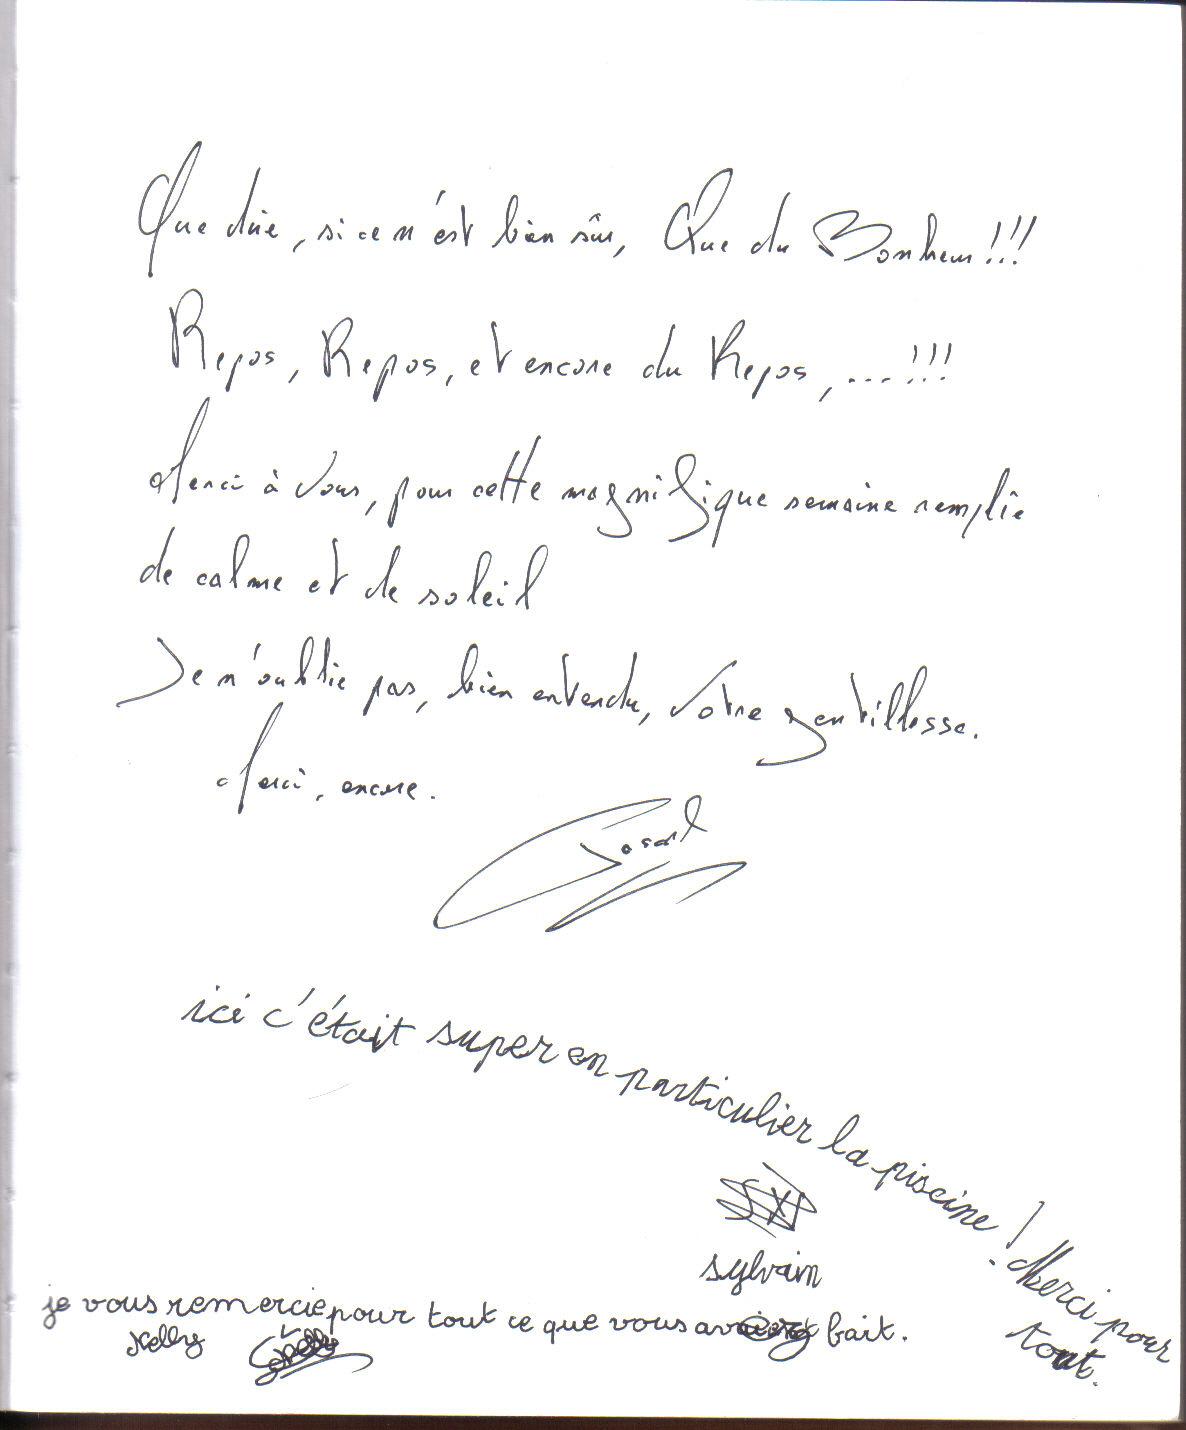 Que dire, si ce n'est bien sûr, Que du Bonheur!!!
Repos, Repos, et encore du Repos, ...!!!
Merci à vous, pour cette magnifique semaine remplie
de calme et de soleil
Je n'oublie pas, bien entendu, votre gentillesse.
Merci, encore.
ici c'était super en particulier la piscine ! Merci pour
tout.
sylvain
je vous remercie pour tout ce que vous fait.
Kelly